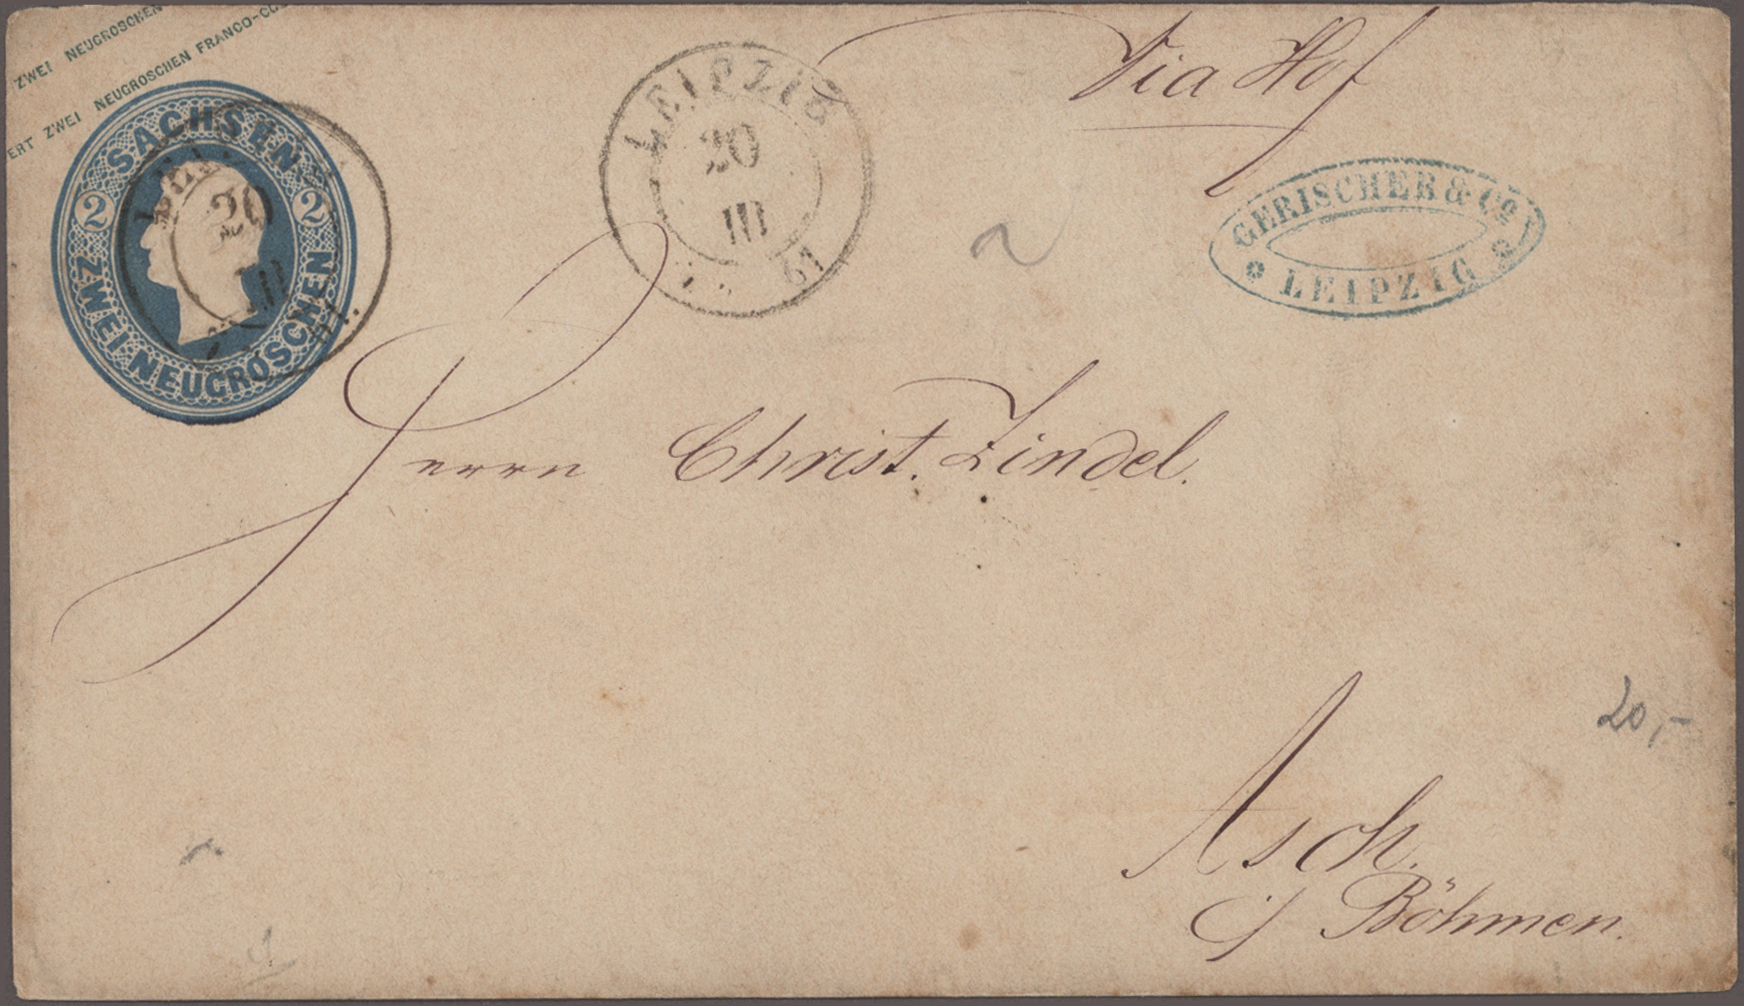 ZWEI NEUGROSCHEN
ERT ZWEI NEUGROSCHEN FRANCO-CO
SACHSEN
2 2
ZWEI NEUGROSCHEN
20
III
LEIPZIG
20
III
61
Via Hof
GERISCHER & Co
LEIPZIG
2
Herrn Christ. Zindel.
20,-
Asch.
i/ Böhmen.